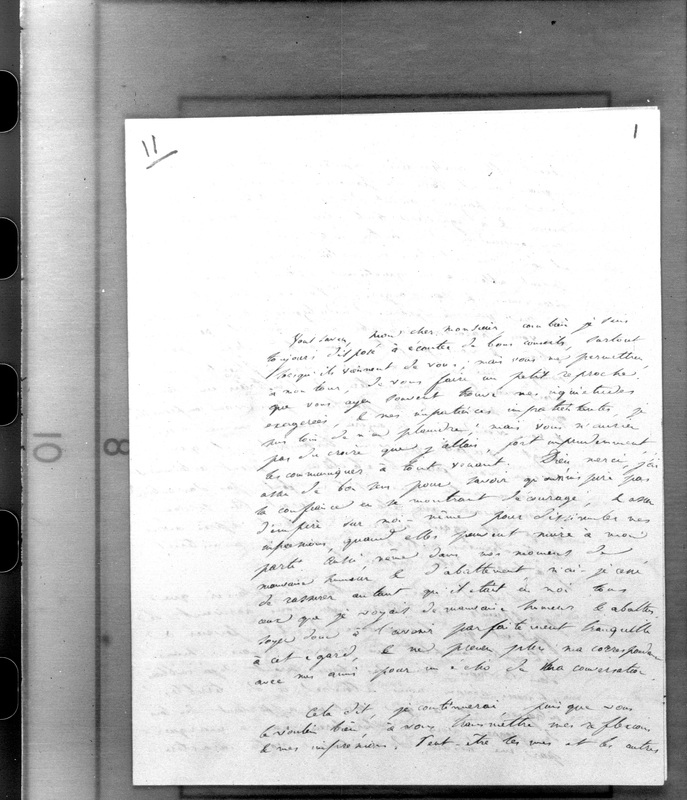 11
1
Vous savez, mon cher monsieur, combien je suis
toujours disposé à écouter de bons conseils, surtout
lorsqu'ils viennent de vous; mais vous me permettrez
à mon tour, de vous faire un petit reproche.
que vous ayez souvent trouvé mes inquiétudes
exagérées & mes impatiences impatientantes, je
suis loin de m'en plaindre; mais vous n'auriez
pas dû croire que j'allais, fort imprudemment
les communiquer à tout venant. Dieu merci, j'ai
assez de bon sens pour savoir qu'on n'inspire pas
la confiance en se montrant découragé, & assez
d'empire sur moi-même pour dissimuler mes
impressions, quand elles peuvent nuire à mon
parti. même dans mes moments de
mauvaise humeur & d'abattement n'ai-je cessé
de rassurer autant qu'il était en moi tous
ceux que je voyais de mauvaise humeur & abattus
soyez donc à l'avenir parfaitement tranquille
à cet égard, & ne prenez plus ma correspondance
avec mes amis pour un écho de ma conversation.
Cela dit, je continuerai, puisque vous
le voulez bien, à vous transmettre mes réflexions
& mes impressions. Peut-être les unes et les autres
10
8